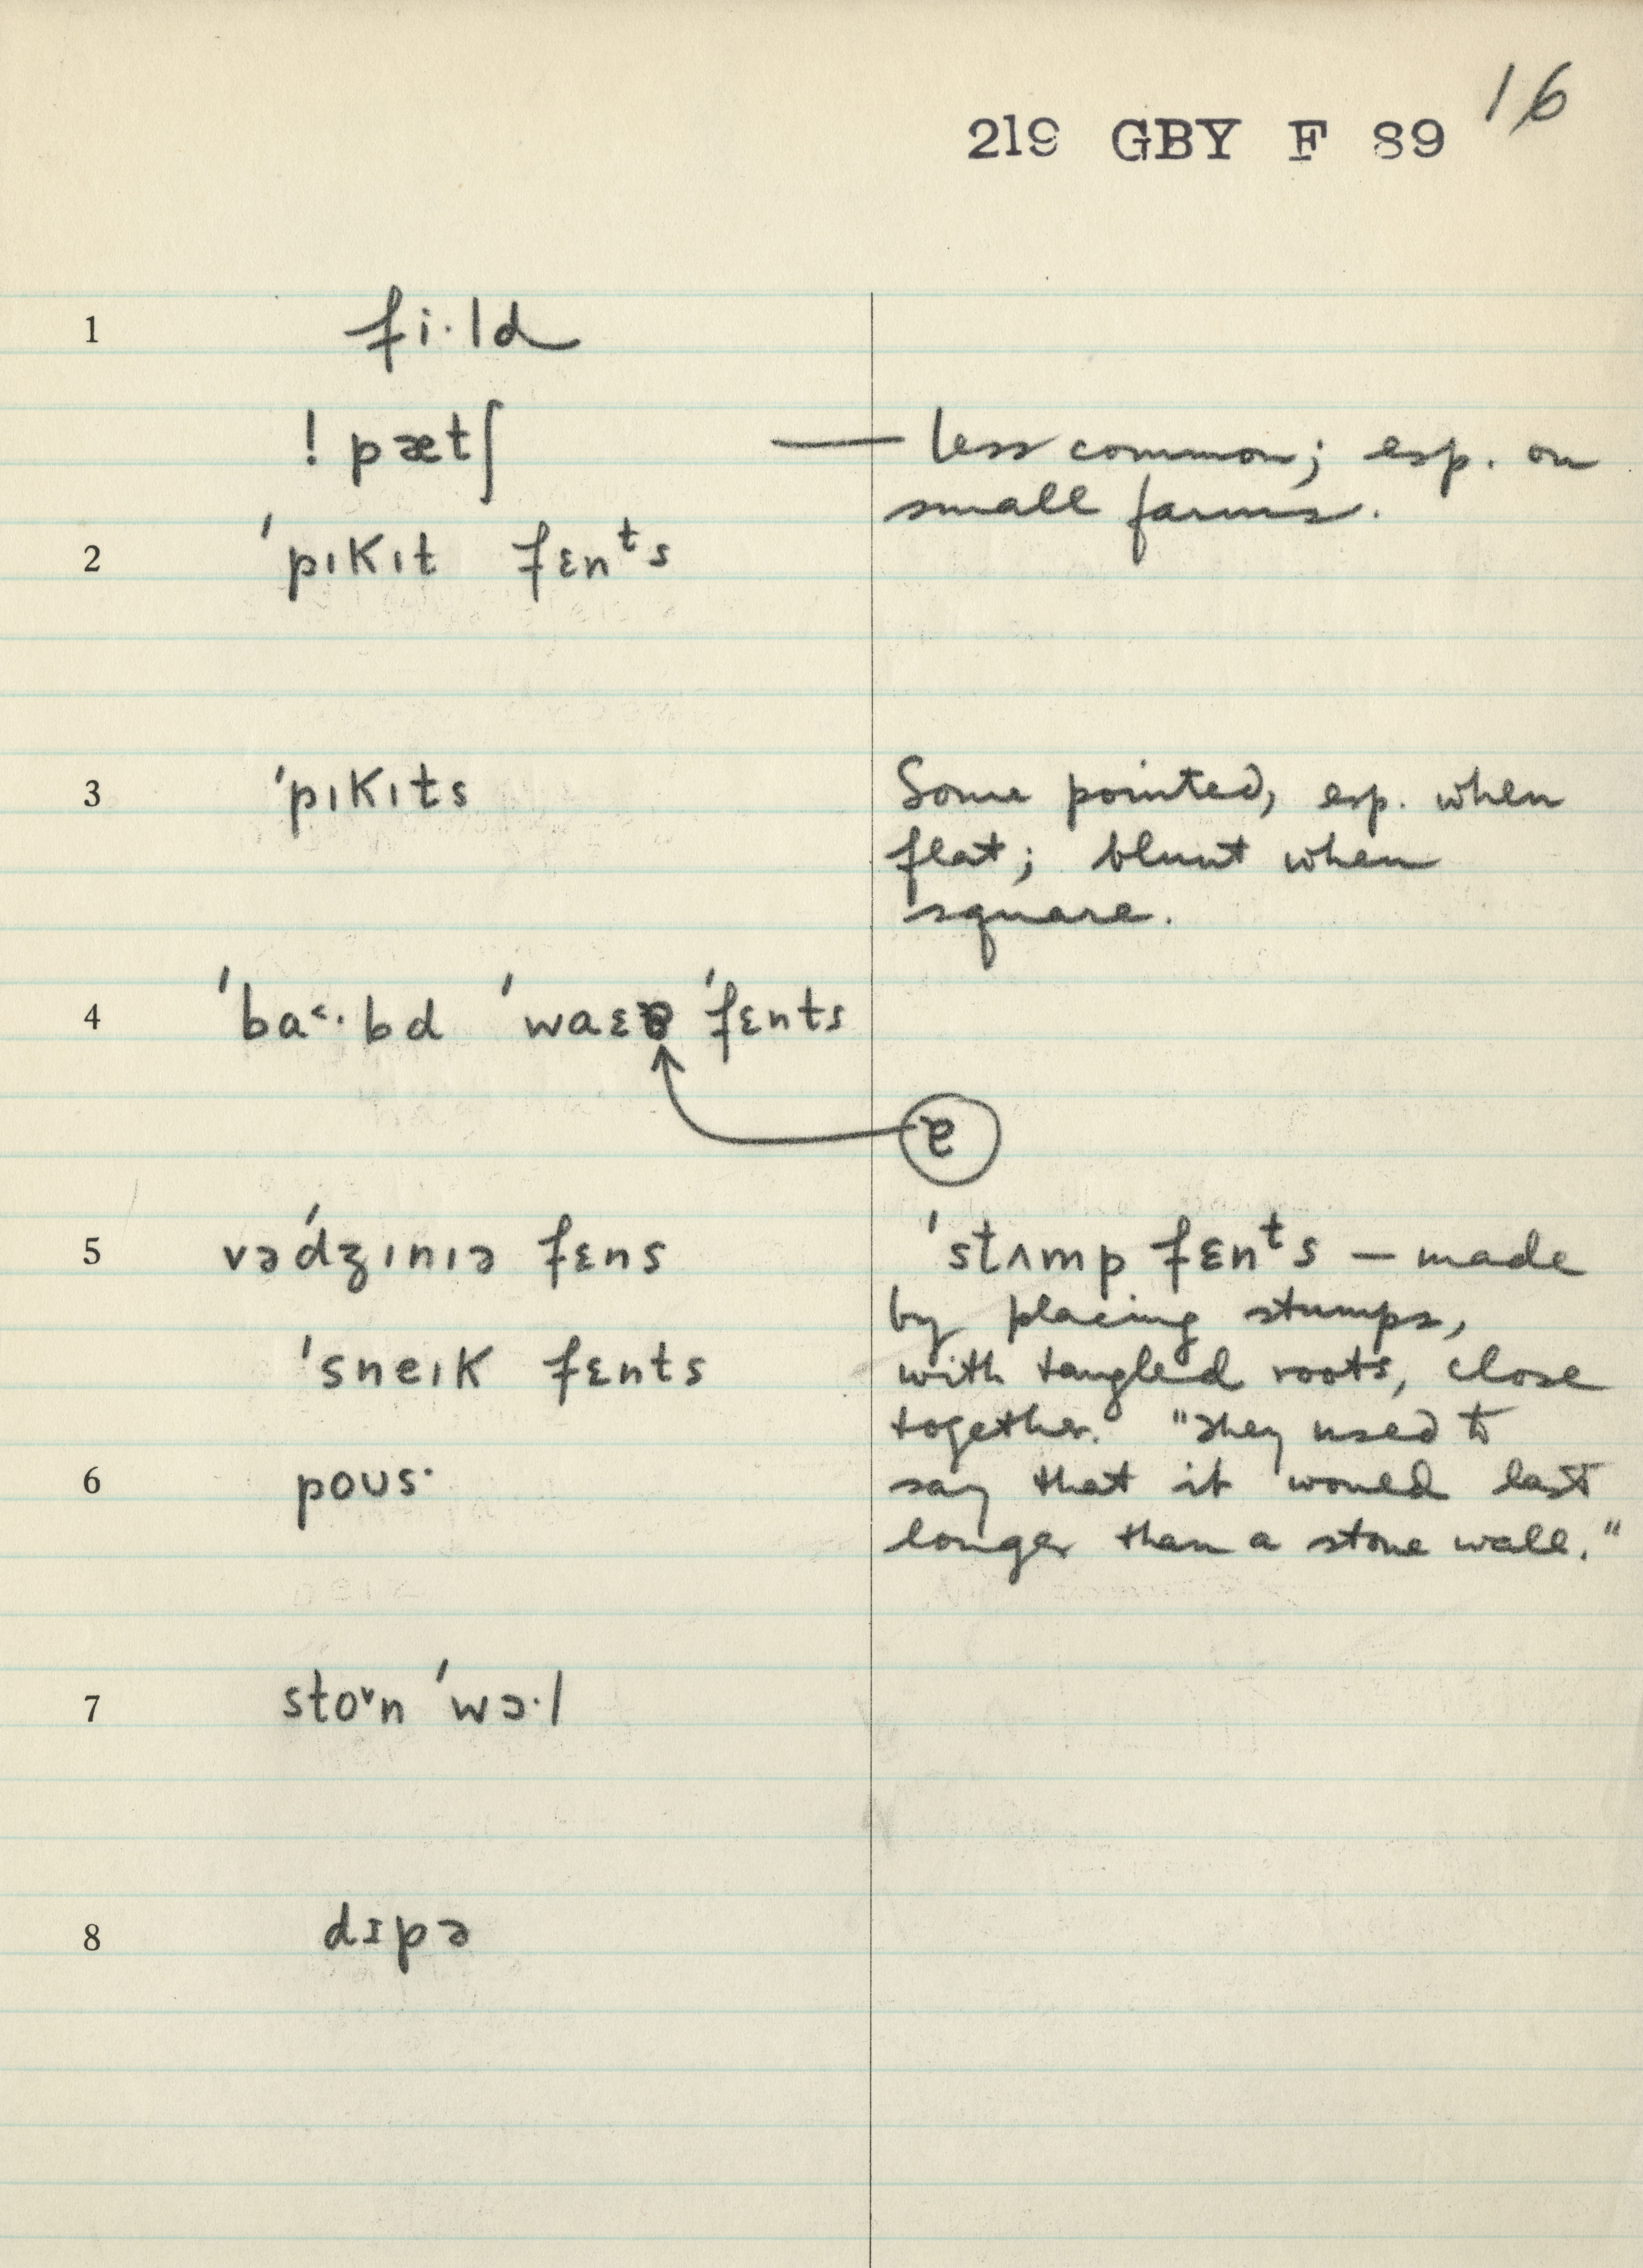 16
219 GBY F 89
1 fi·ld
! pætʃ — less common; esp. on
small farms.
2 'pɪkɪt fɛnᵗs
3 'pɪkɪts Some pointed, esp. when
flat; blunt when
square.
4 'ba˂·bd 'waɛɐ 'fɛnts
ɐ
5 və'dʒɪnɪə fɛns 'stʌmp fɛnᵗs — made
by placing stumps,
'sneɪk fɛnts with tangled roots, close
together. "They used to
6 poʊs· say that it would last
longer than a stone wall."
7 sto˅n 'wɔ·l
8 dɪpə